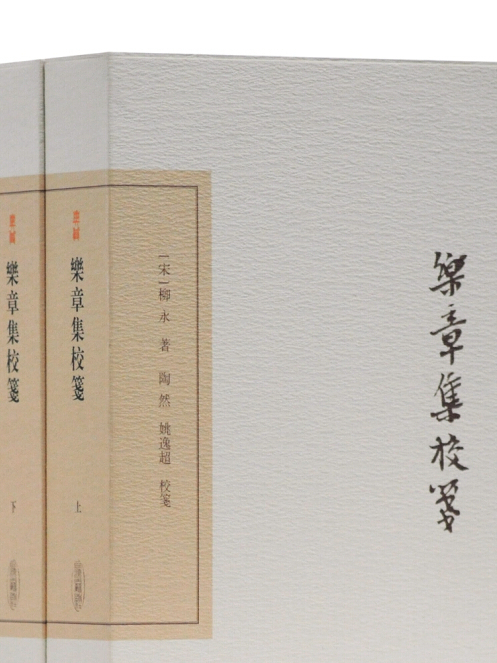 樂章集校箋
[宋]柳永 著 陶然 姚逸超 校箋
典藏
樂章集校箋
上
樂章集校箋
下